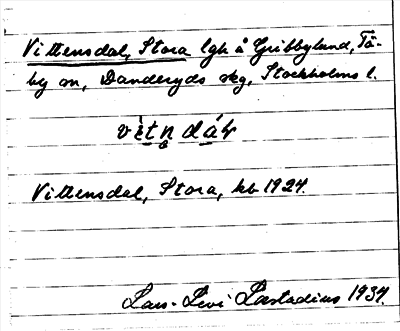 Vittensdal, Stora lgh å Gribbylund, Tä-
by sn, Danderyds skg, Stockholms l.
vìtn̥ dáɫr
Vittensdal, Stora, kb 1924.
Lars-Levi Læstadius 1934.